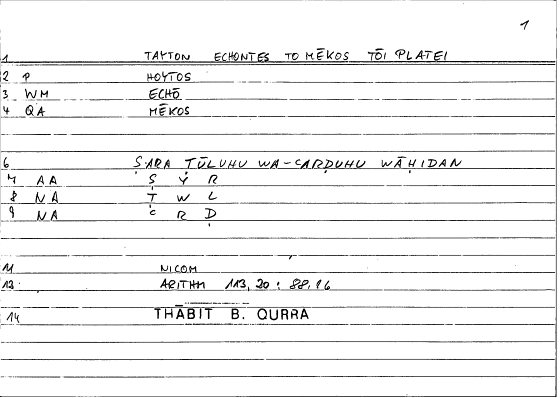 1
1 TAYTON ECHONTES TO MĒKOS TŌI PLATEI
2 P HOYTOS
3 WM ECHŌ
4 QA MĒKOS
6 ṢĀRA ṬŪLUHU WA-CARḌUHU WĀḤIDAN
7 AA Ṣ Y R
8 NA Ṭ W L
9 NA C R Ḍ
11 NICOM
13 ARITHM 113,20 : 88,16
14 THĀBIT B. QURRA